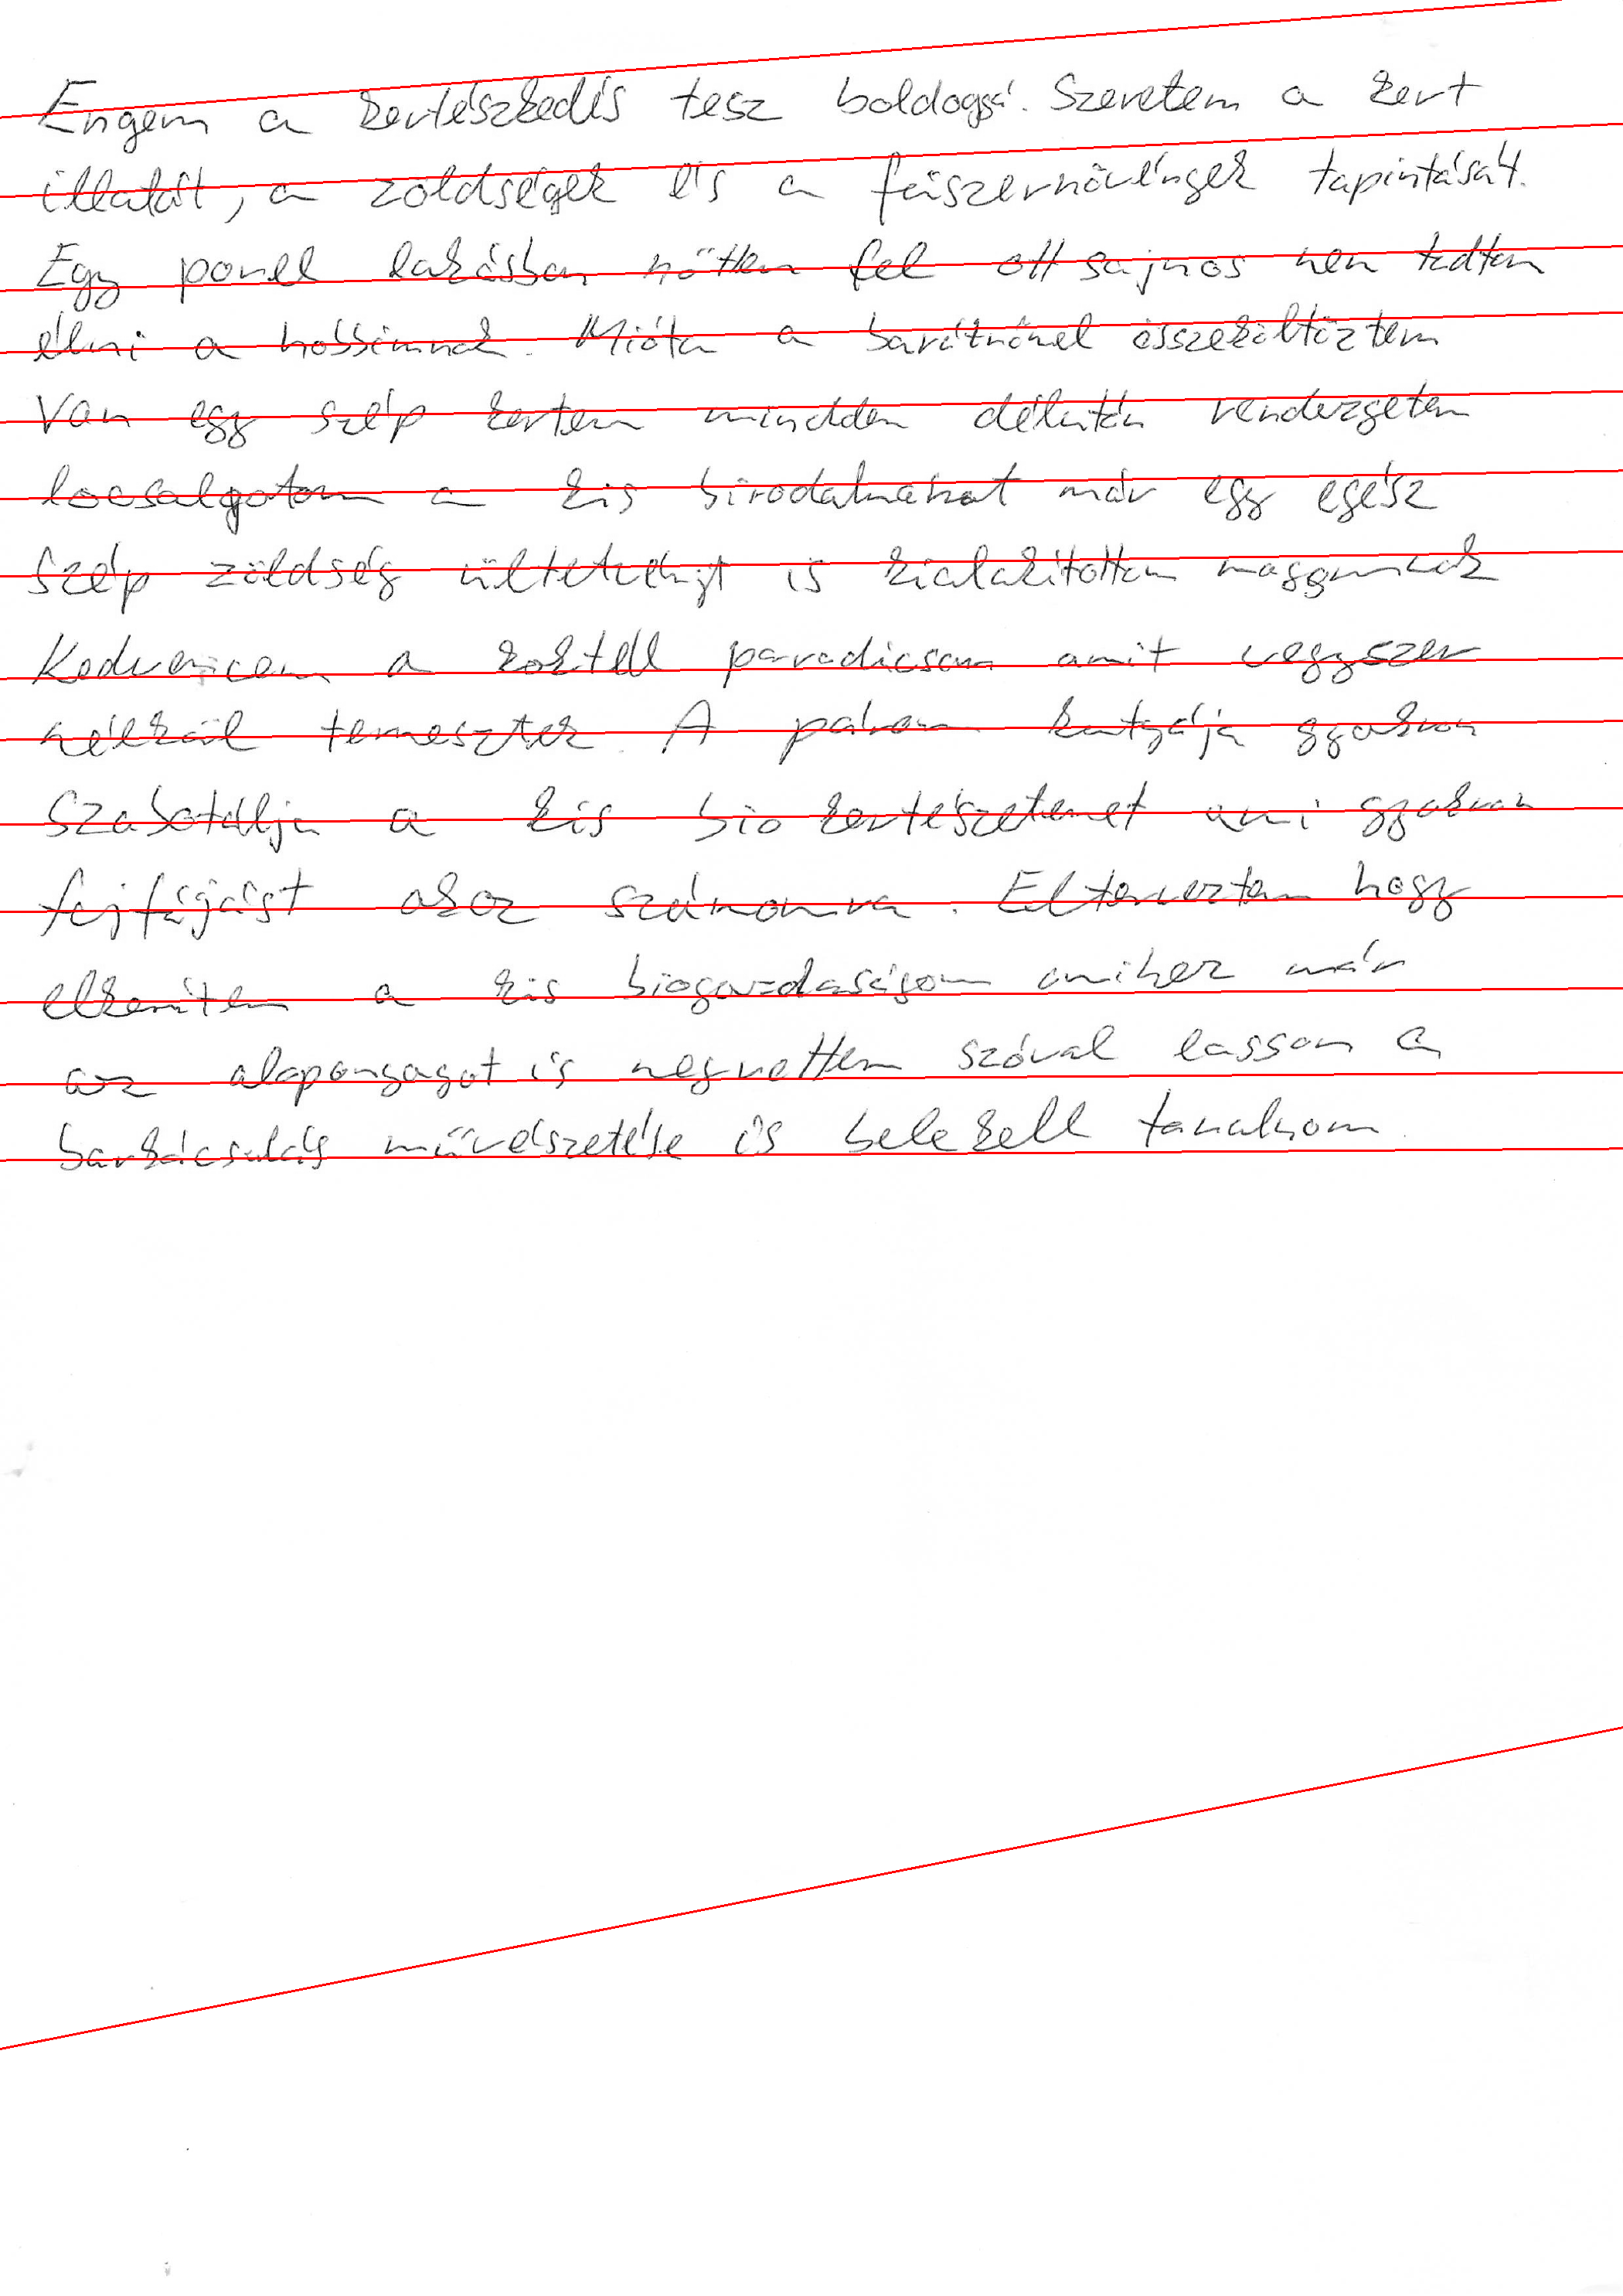 Engem a kertészkedés tesz boldoggá. Szeretem a kert
illatát, a zöldségek és a fűszernövények tapintását.
Egy panel lakásban nőttem fel ott sajnos nem tudtam
élni a hobbimnak. Mióta a barátnőmel összeköltöztem
Van egy szép kertem mindden délután rendezgetem
locsolgatom a kis birodalmahat már egy egész
szép zöldség ültetvényt is kialakítottam magamnak
Kedvencem a koktél paradicsom amit vegyszer
nélkül termesztek. A párom kutyája gyakran
szabotálja a kis bio kertészetemet ami gyakran
fejfájást okoz számomra. Elterveztem hogy
elkerítem a kis biogazdaságom amihez már
az alapanyagot is megvettem szóval lassan a
barkácsolás művészetébe is bele kell tanulnom.